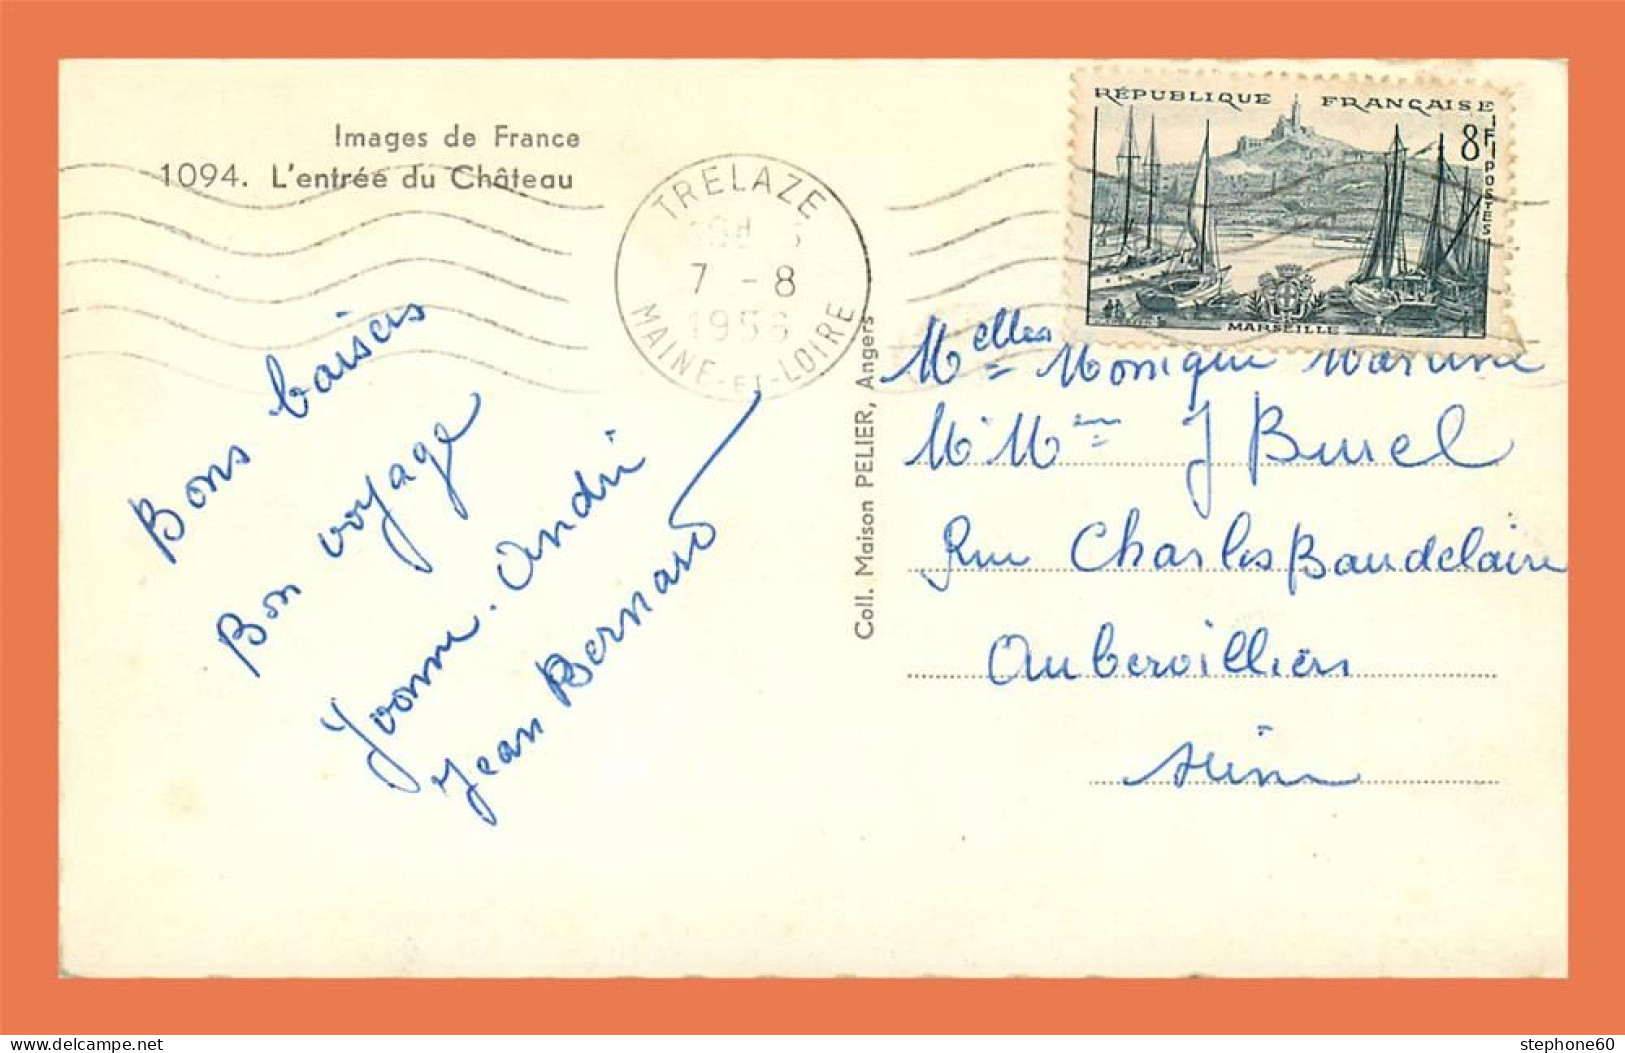 Images de France
1094. L'entrée du Château
TRELAZE
7 - 8
1956
MAINE-ET-LOIRE
RÉPUBLIQUE FRANÇAISE
8F
POSTES
MARSEILLE
Bons baisers
Bon voyage
Yvonne. André
Jean Bernard
Coll. Maison PELIER, Angers
Melles Monique
M. Mme J Burel
Rue Charles Baudelaire
Aubervilliers
Seine
delcampe.net
stephone60